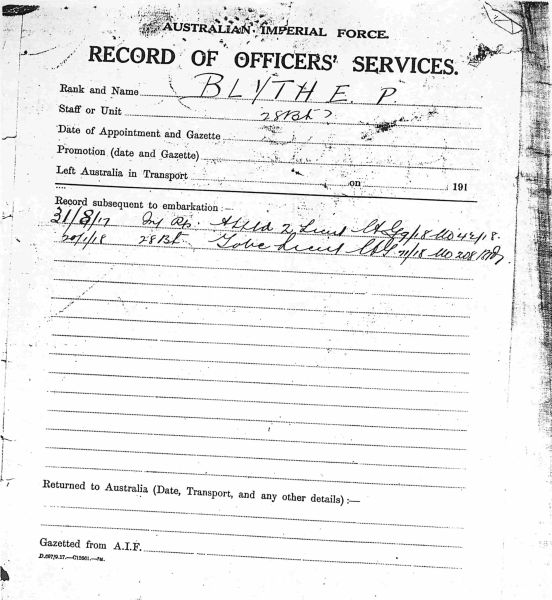 AUSTRALIAN IMPERIAL FORCE.
RECORD OF OFFICERS' SERVICES.
Rank and Name BLYTHE P
Staff or Unit 28Bt ?
Date of Appointment and Gazette
Promotion (date and Gazette)
Left Australia in Transport on 191
Record subsequent to embarkation :—
31/8/17 2 Lieut
20/1/18 28Bt To be Lieut
Returned to Australia (Date, Transport, and any other details) :—
Gazetted from A.I.F.